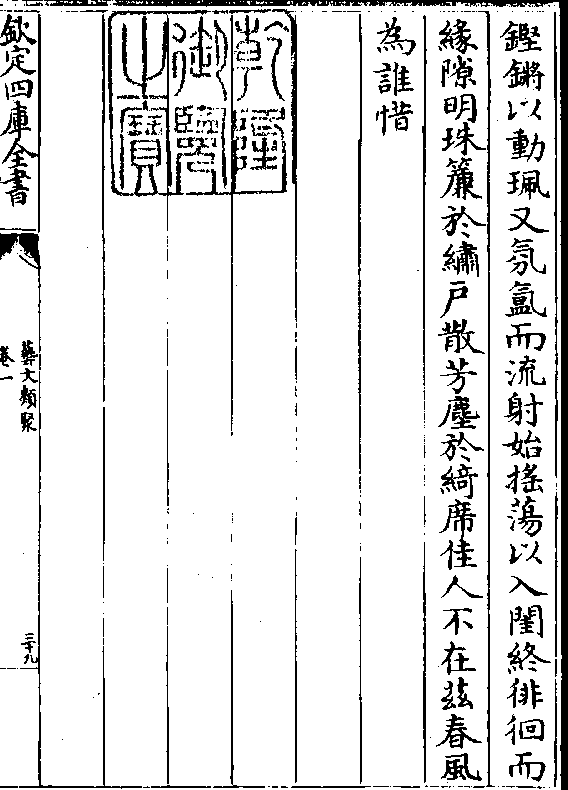 鏗鏘以動珮又氛氳而流射始搖蕩以入閨終徘徊而
緣隙明珠簾於繡戶散芳塵於綺席佳人不在茲春風
為誰惜
乾隆
御覽
之寶
欽定四庫全書
藝文類聚
卷一
三十九